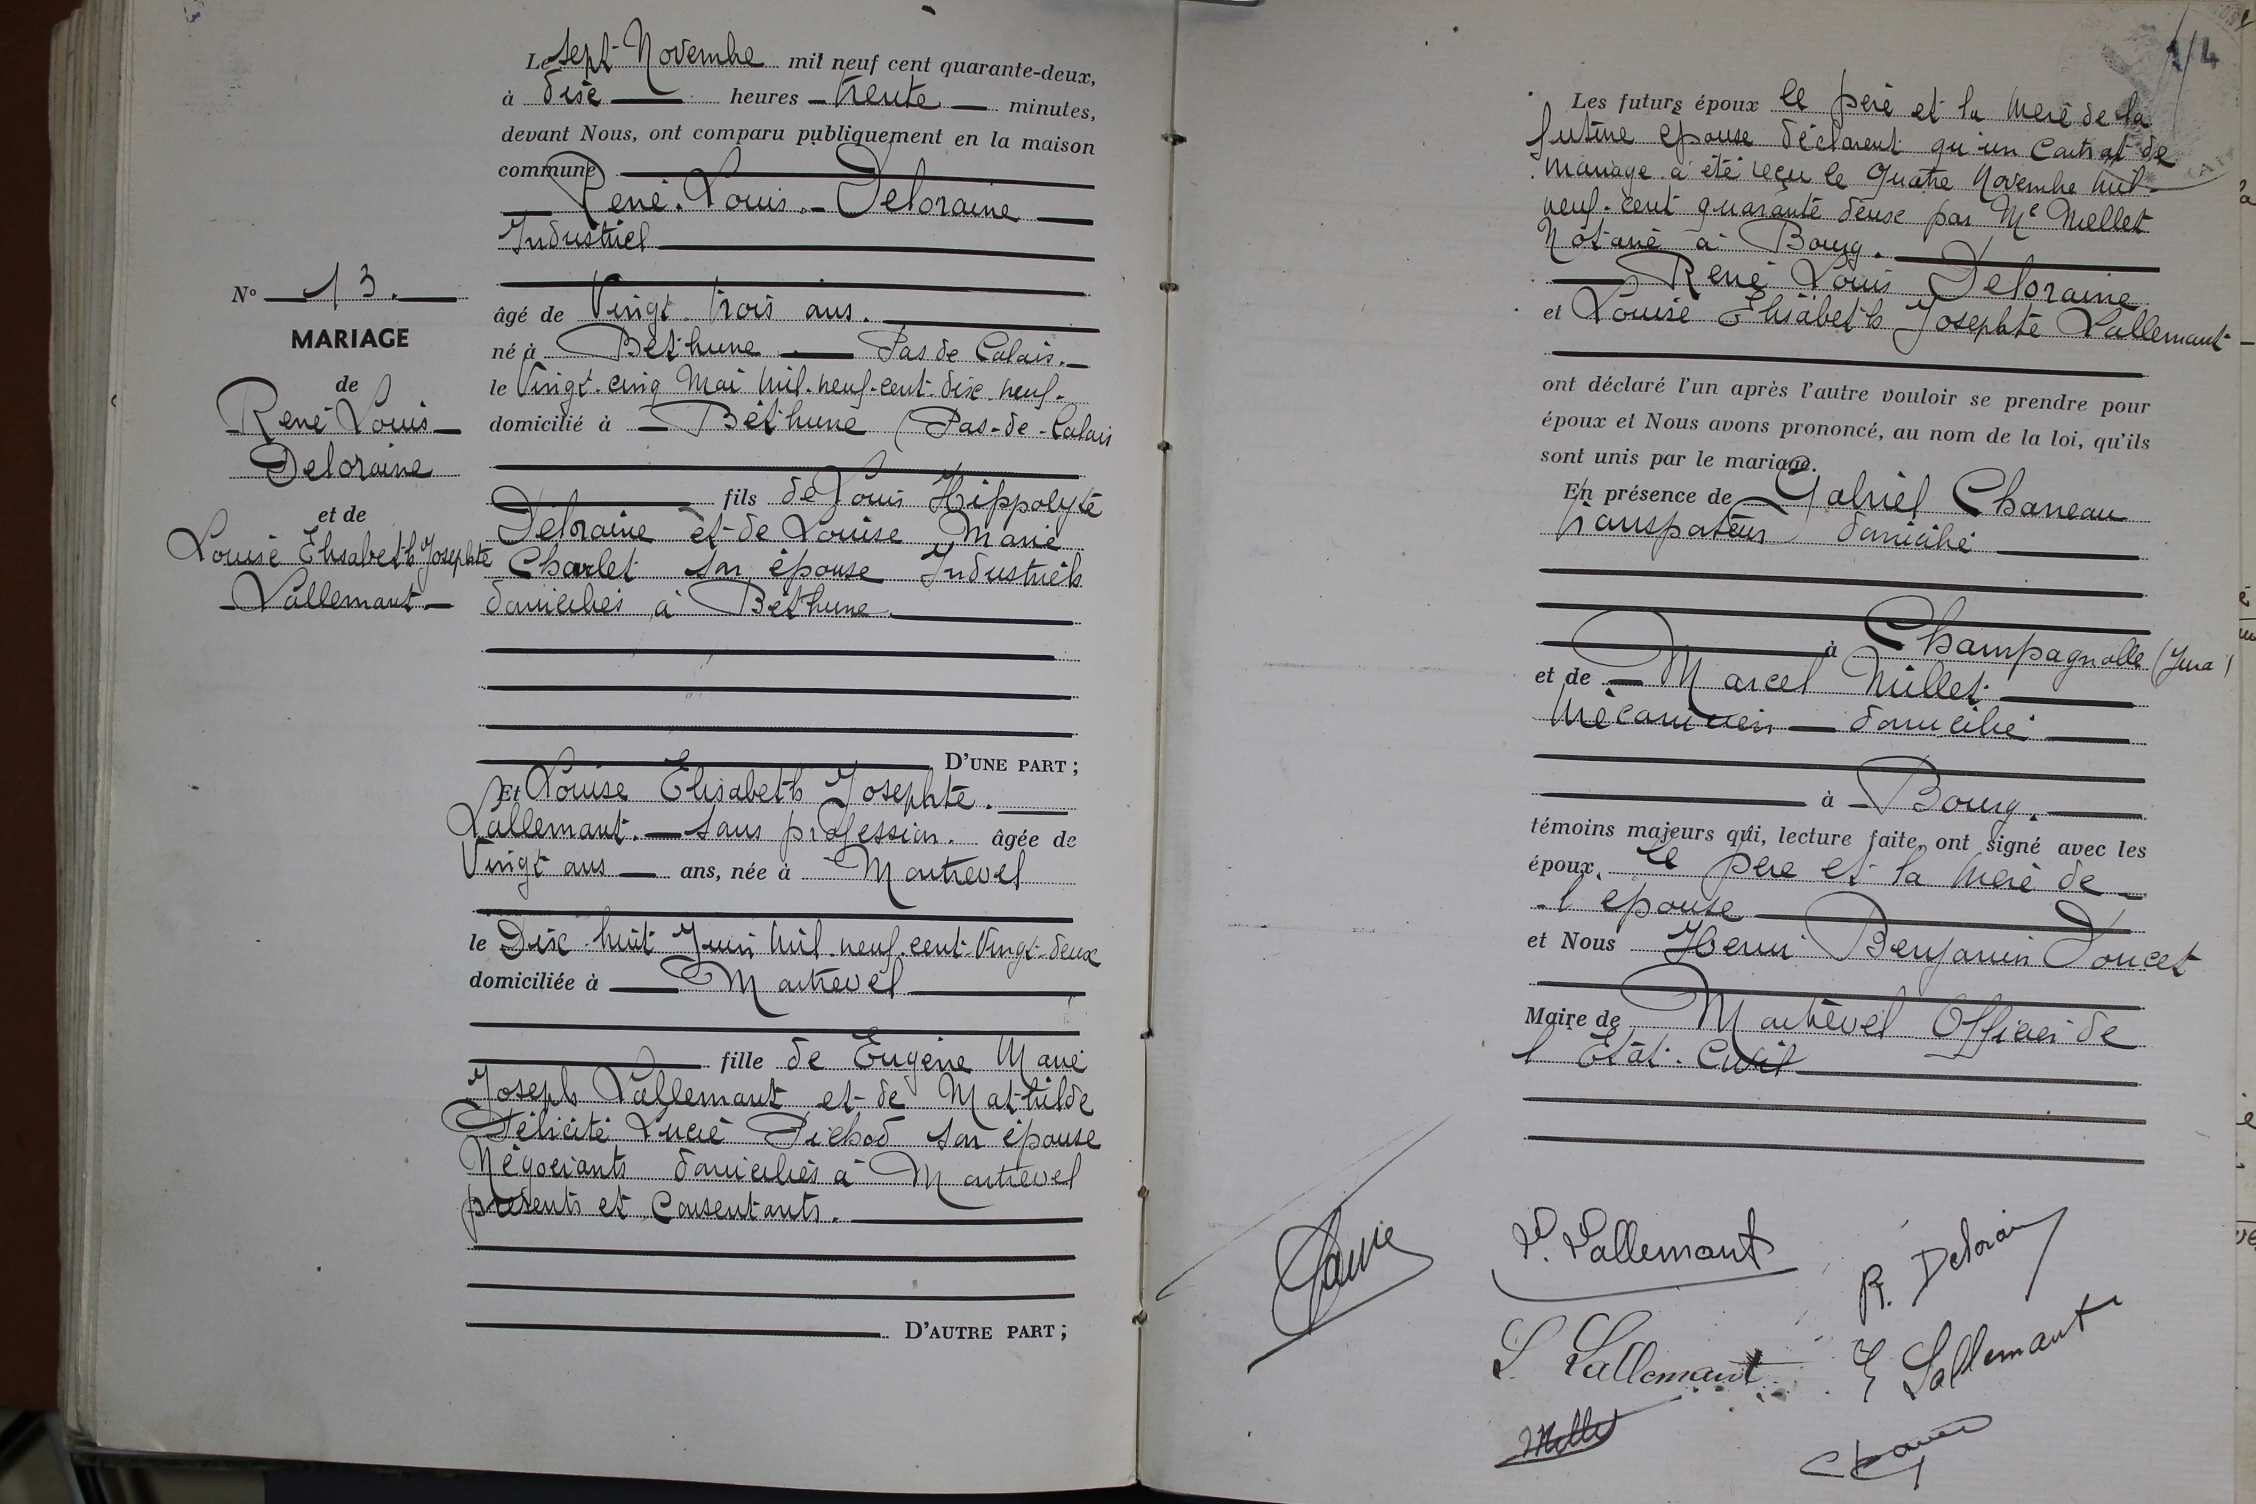 Le sept Novembre mil neuf cent quarante-deux,
à dix heures trente minutes,
devant Nous, ont comparu publiquement en la maison
commune
René Louis Deloraine
Industriel
âgé de Vingt trois ans.
né à Béthune Pas de Calais.
le Vingt-cinq Mai mil-neuf-cent-dix-neuf-
domicilié à Béthune (Pas-de-Calais
fils de Louis Hippolyte
Deloraine et de Louise Marie
Charlet son épouse Industriels
domiciliés à Béthune
D'UNE PART ;
Et Louise Elisabeth Josephte.
Lallemant. sans profession. âgée de
Vingt ans ans, née à Montrevel
le Dix-huit Juin mil-neuf-cent-Vingt-deux
domiciliée à Montrevel
fille de Eugène Marie
Joseph Lallemant et de Mathilde
Félicité Lucie Pichod son épouse
Négociants domiciliés à Montrevel
présents et consentants.
D'AUTRE PART ;
N° 13.
MARIAGE
de
René Louis
Deloraine
et de
Louise Elisabeth Josephte
Lallemant
1/4
Les futurs époux le père et la mère de la
future épouse déclarent qu'un contrat de
mariage a été reçu le Quatre Novembre mil-
neuf-cent quarante deux par Me Mellet
Notaire à Bourg.
René Louis Deloraine
et Louise Elisabeth Josephte Lallemant
ont déclaré l'un après l'autre vouloir se prendre pour
époux et Nous avons prononcé, au nom de la loi, qu'ils
sont unis par le mariage.
En présence de Gabriel Chaneau
transporteur domicilié
à Champagnolle (Jura)
et de Marcel Millet
Mécanicien domicilié
à Bourg.
témoins majeurs qui, lecture faite, ont signé avec les
époux. le père et la mère de
l'épouse
et Nous Henri Benjamin Doucet
Maire de Montrevel Officier de
l'Etat-Civil
Lallemant
R. Delorain
L. Lallemant
E Lallemant